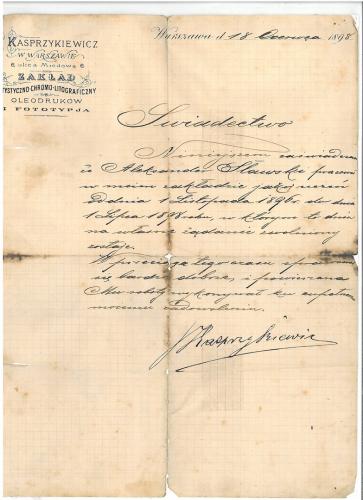 KASPRZYKIEWICZ
W WARSZAWIE
6 ulica Miodowa 6
ZAKŁAD
TYSTYCZNO-CHROMO-LITOGRAFICZNY
OLEODRUKÓW
I FOTOTYPJA
Warszawa d. 18 Czerwca 1898
Świadectwo
Niniejszem zaświadcza
że Aleksander Sławski pracował
w moim zakładzie jako uczeń
od dnia 1 Listopada 1896 r. do dnia
1 Lipca 1898 roku, w którym to dniu
na własne żądanie uwolniony
zostaje.
W przeciągu tego czasu sprawował
się bardzo dobrze, i powierzone
Mu roboty wykonywał ku zupełnemu
mojemu zadowoleniu.
J Kasprzykiewicz